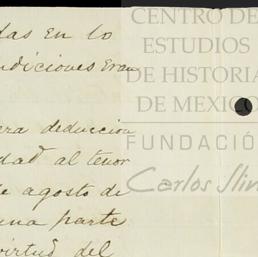 das en lo
ndiciones eran
era deduccion
dad al tenor
e agosto de
una parte
virtud del
CENTRO DE
ESTUDIOS
DE HISTORIA
DE MEXICO
FUNDACIÓ
Carlos Slim